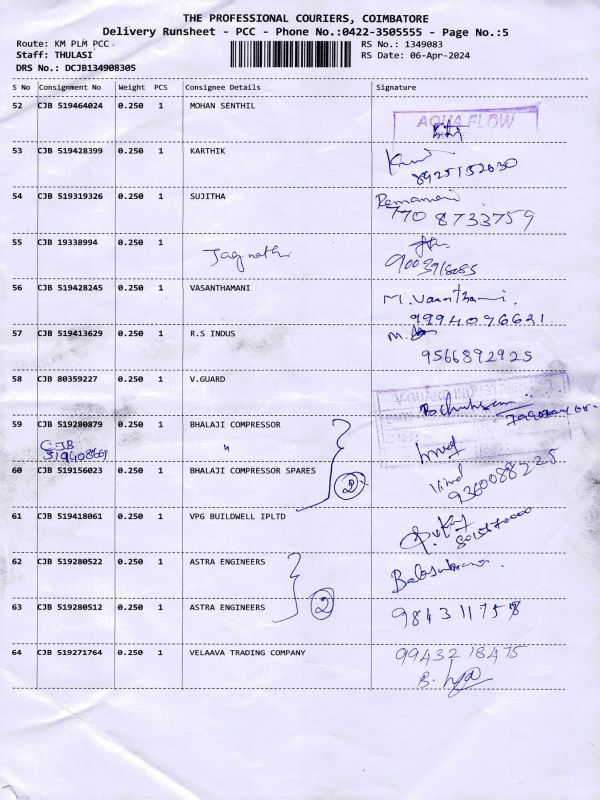 THE PROFESSIONAL COURIERS, COIMBATORE
Delivery Runsheet - PCC - Phone No.:0422-3505555 - Page No.:5
Route: KM PLM PCC . RS No.: 1349083
Staff: THULASI RS Date: 06-Apr-2024
DRS No.: DCJB134908305
S No Consignment No Weight PCS Consignee Details Signature
52 CJB 519464024 0.250 1 MOHAN SENTHIL
AQUA FLOW
53 CJB 519428399 0.250 1 KARTHIK
8925152030
54 CJB 519319326 0.250 1 SUJITHA
770 8733759
55 CJB 19338994 0.250 1 Jagnath
9003918085
56 CJB 519428245 0.250 1 VASANTHAMANI M. Vasanthamani.
9994096621
57 CJB 519413629 0.250 1 R.S INDUS
9566892925
58 CJB 80359227 0.250 1 V.GUARD
59 CJB 519280879 0.250 1 BHALAJI COMPRESSOR
CJB "
60 CJB 519156023 0.250 1 BHALAJI COMPRESSOR SPARES
9360088225
61 CJB 519418061 0.250 1 VPG BUILDWELL IPLTD
62 CJB 519280522 0.250 1 ASTRA ENGINEERS
63 CJB 519280512 0.250 1 ASTRA ENGINEERS 2
64 CJB 519271764 0.250 1 VELAAVA TRADING COMPANY 9943218475